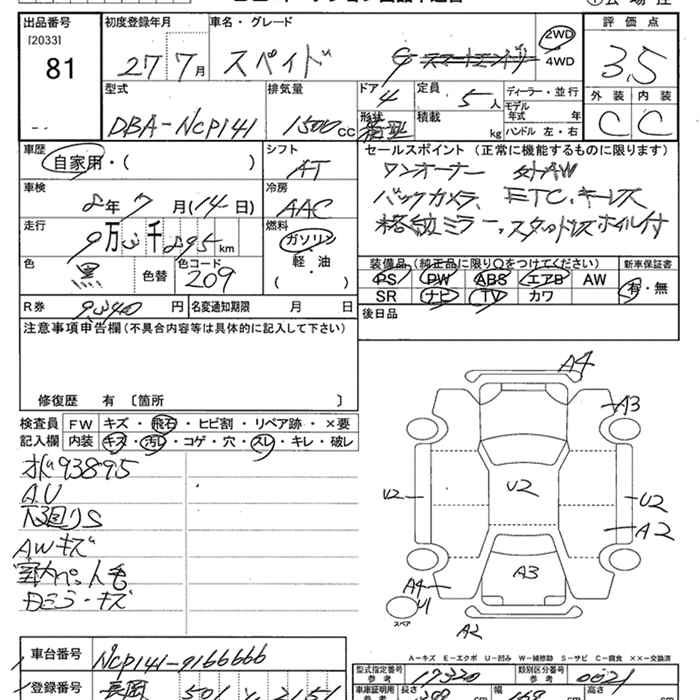 出品番号 初度登録年月 車名・グレード 評価点
[2033]
81
27年7月 スペイド G 2WD 4WD 3.5
型式 排気量 ドア 定員 ディーラー・並行 外装 内装
DBA-NCP141 1500cc 4 5人
形状 積載 kg モデル年式 年 ハンドル 左・右 C C
車歴 シフト セールスポイント (正常に機能するものに限ります)
自家用・( ) AT ワンオーナー
車検 冷房 バックカメラ、ETC、キーレス
8年7月(14日) AAC 格納ミラー、スタッドレスホイル付
走行 燃料
9万3千895km ガソリン・軽油
( )
色 黒 色替 色コード 209
装備品 (純正品に限り○をつけてください) 新車保証書
PS PW ABS エアB AW 有・無
SR ナビ TV カワ
R券 円 名変通知期限 月 日 後日品
注意事項申告欄(不具合内容等は具体的に記入して下さい)
修復歴 有 〔箇所 〕
検査員 FW キズ・飛石・ヒビ割・リペア跡・×要
記入欄 内装 キズ・汚レ・コゲ・穴・スレ・キレ・破レ
93895
A.U
下廻りS
AWキズ
A4
A3
U2 U2 U2
A2
A3
A4
U1
スペア
A2
A-キズ E-エクボ U-凹み W-補修跡 S-サビ C-腐食 ××-交換済
車台番号 NCP141-9166666
型式指定番号 参考 17320 類別区分番号 参考 0021
登録番号 長岡 501
車庫証明用 参考 長さ cm 幅 cm 高さ cm